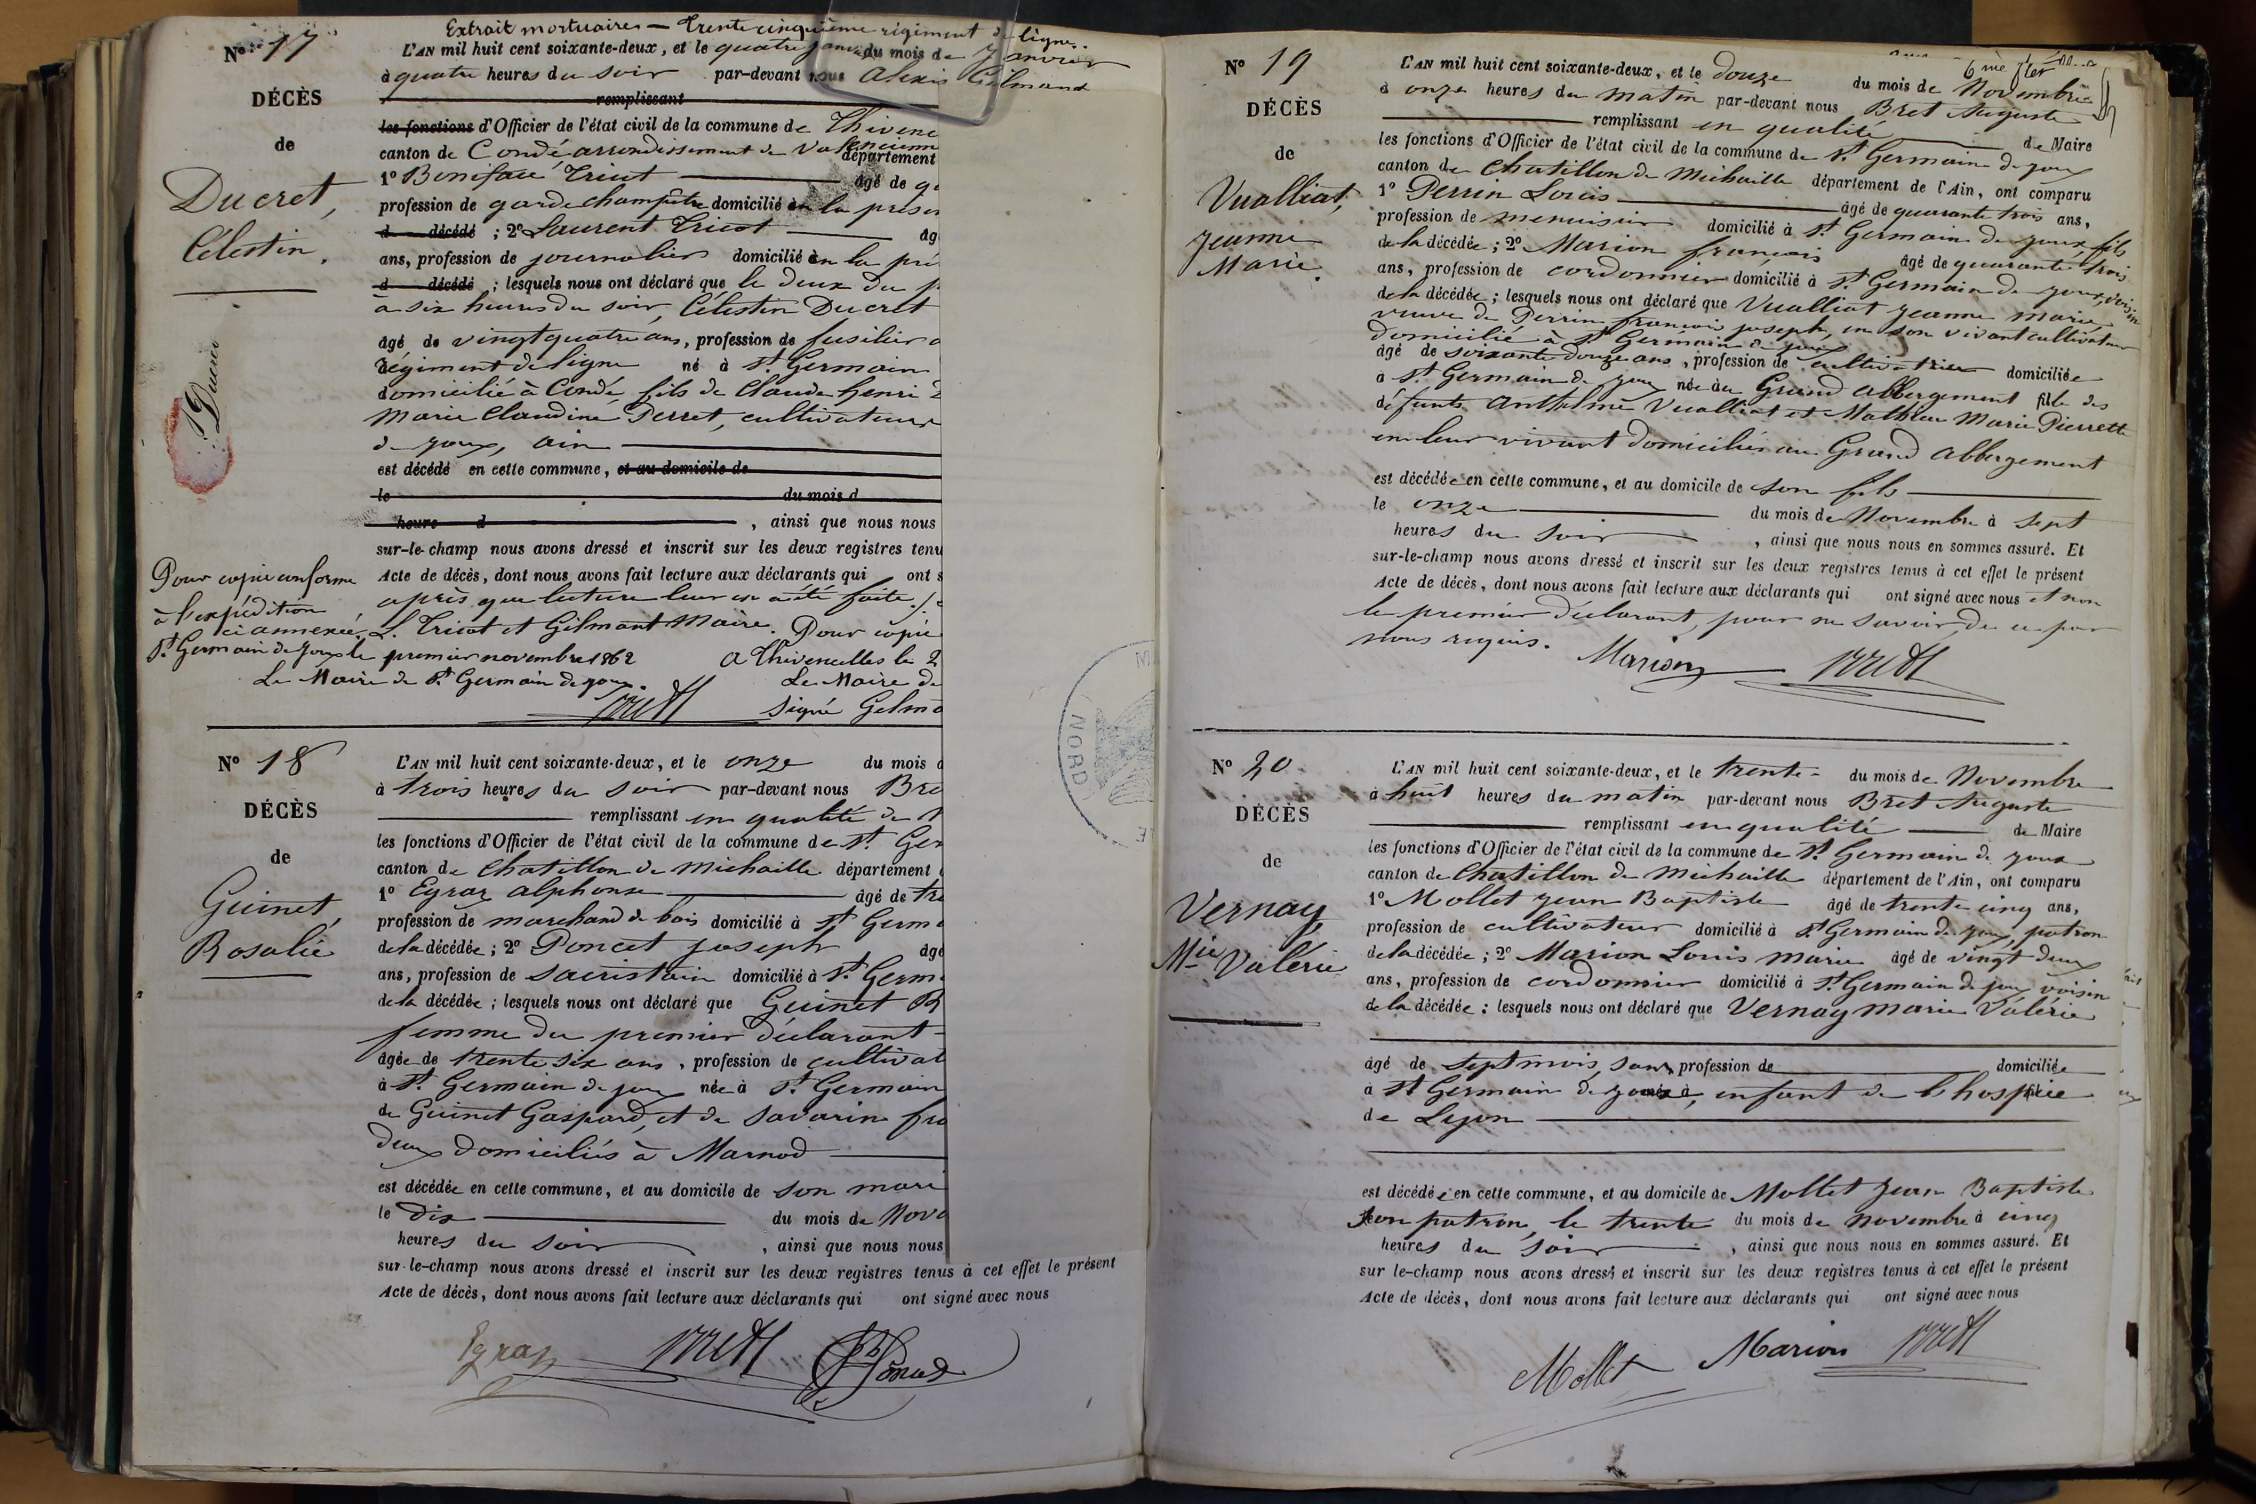 Extrait mortuaire — Trente cinquième régiment de ligne.
N° 17
L'AN mil huit cent soixante-deux, et le quatre du mois de Janvier
à quatre heures du soir par-devant nous Alexis Gilmant
DÉCÈS
remplissant
les fonctions d'Officier de l'état civil de la commune de Thivenc
de
canton de Condé arrondissement de Valencienn département
1° Boniface Tricot âgé de
Ducret,
profession de garde champêtre domicilié en la présen
d décédé ; 2° Laurent Tricot âg
Célestin.
ans, profession de journalier domicilié en la pré
d décédé ; lesquels nous ont déclaré que le deux du
à six heures du soir, Célestin Ducret
âgé de vingt quatre ans, profession de fusilier
régiment de ligne né à St. Germain
domicilié à Condé, fils de Claude henri
Marie Claudine Perret, cultivateurs
de joux, ain
est décédé en cette commune, et au domicile de
le du mois d
heure d , ainsi que nous nous
sur-le-champ nous avons dressé et inscrit sur les deux registres tenu
Acte de décès, dont nous avons fait lecture aux déclarants qui ont s
après que lecture leur en a été faite
L. Tricot et Gilmant Maire. Pour copie
Pour copie conforme
à l'expédition
ci annexée
St. Germain de Joux le premier novembre 1862
A Thivencelles le 2
Le Maire de St. Germain de joux.
Le Maire de
Signé Gilma
N° 18
L'AN mil huit cent soixante-deux, et le onze du mois d
à trois heures du soir par-devant nous Bre
DÉCÈS
remplissant en qualité de
les fonctions d'Officier de l'état civil de la commune de St. Ger
de
canton de Chatillon de Michaille département
1° Egraz alphonse âgé de tre
Guinet,
profession de marchand de bois domicilié à St Germ
Rosalie
de la décédée ; 2° Poncet joseph âgé
ans, profession de sacristain domicilié à St. Germ
de la décédée ; lesquels nous ont déclaré que Guinet R
femme du premier déclarant
âgée de trente six ans, profession de cultivat
à St. Germain de joux née à St. Germain
de Guinet Gaspard, et de Savarin fra
deux domiciliés à Marnod
est décédée en cette commune, et au domicile de son mari
le dix du mois de Nove
heures du soir , ainsi que nous nous
sur-le-champ nous avons dressé et inscrit sur les deux registres tenus à cet effet le présent
Acte de décès, dont nous avons fait lecture aux déclarants qui ont signé avec nous
Egraz
NORD
N° 19
L'AN mil huit cent soixante-deux, et le douze du mois de Novembre
à onze heures du matin par-devant nous Bret Auguste
DÉCÈS
remplissant en qualité de Maire
les fonctions d'Officier de l'état civil de la commune de St. Germain de joux
de
canton de Chatillon de Michaille département de l'Ain, ont comparu
1° Perrin Louis âgé de quarante trois ans,
Vualliat,
profession de menuisier domicilié à St. Germain de joux, fils
Jeanne
de la décédée ; 2° Marion françois âgé de quarante trois
Marie.
ans, profession de cordonnier domicilié à St. Germain de joux, voisin
de la décédée ; lesquels nous ont déclaré que Vualliat jeanne marie
veuve de Perrin françois joseph, en son vivant cultivateur
domicilié à St Germain de joux
âgé de soixante douze ans, profession de cultivatrice domiciliée
à St. Germain de joux née au Grand Abbergement fille des
défunts Anthelme Vualliat et Mathieu Marie Pierrette
en leur vivant domiciliés au Grand Abbergement
est décédée en cette commune, et au domicile de son fils
le onze du mois de Novembre à sept
heures du soir , ainsi que nous nous en sommes assuré. Et
sur-le-champ nous avons dressé et inscrit sur les deux registres tenus à cet effet le présent
Acte de décès, dont nous avons fait lecture aux déclarants qui ont signé avec nous et non
le premier déclarant, pour ne savoir, de ce par
nous requis.
Marion
N° 20
L'AN mil huit cent soixante-deux, et le trente du mois de Novembre
à huit heures du matin par-devant nous Bret Auguste
DÉCÈS
remplissant en qualité de Maire
les fonctions d'Officier de l'état civil de la commune de St. Germain de joux
de
canton de Chatillon de Michaille département de l'Ain, ont comparu
1° Mollet jean Baptiste âgé de trente cinq ans,
Vernay,
profession de cultivateur domicilié à St Germain de joux, patron
Mie Valérie
de la décédée ; 2° Marion Louis marie âgé de vingt deux
ans, profession de cordonnier domicilié à St. Germain de joux voisin
de la décédée : lesquels nous ont déclaré que Vernay marie Valérie
âgé de sept mois, sans profession de domiciliée
à St Germain de joux née à, enfant de l'hospice
de Lyon
est décédée en cette commune, et au domicile de Mollet Jean Baptiste
son patron, le trente du mois de novembre à cinq
heures du soir , ainsi que nous nous en sommes assuré. Et
sur le-champ nous avons dressé et inscrit sur les deux registres tenus à cet effet le présent
Acte de décès, dont nous avons fait lecture aux déclarants qui ont signé avec nous
Mollet
Marion